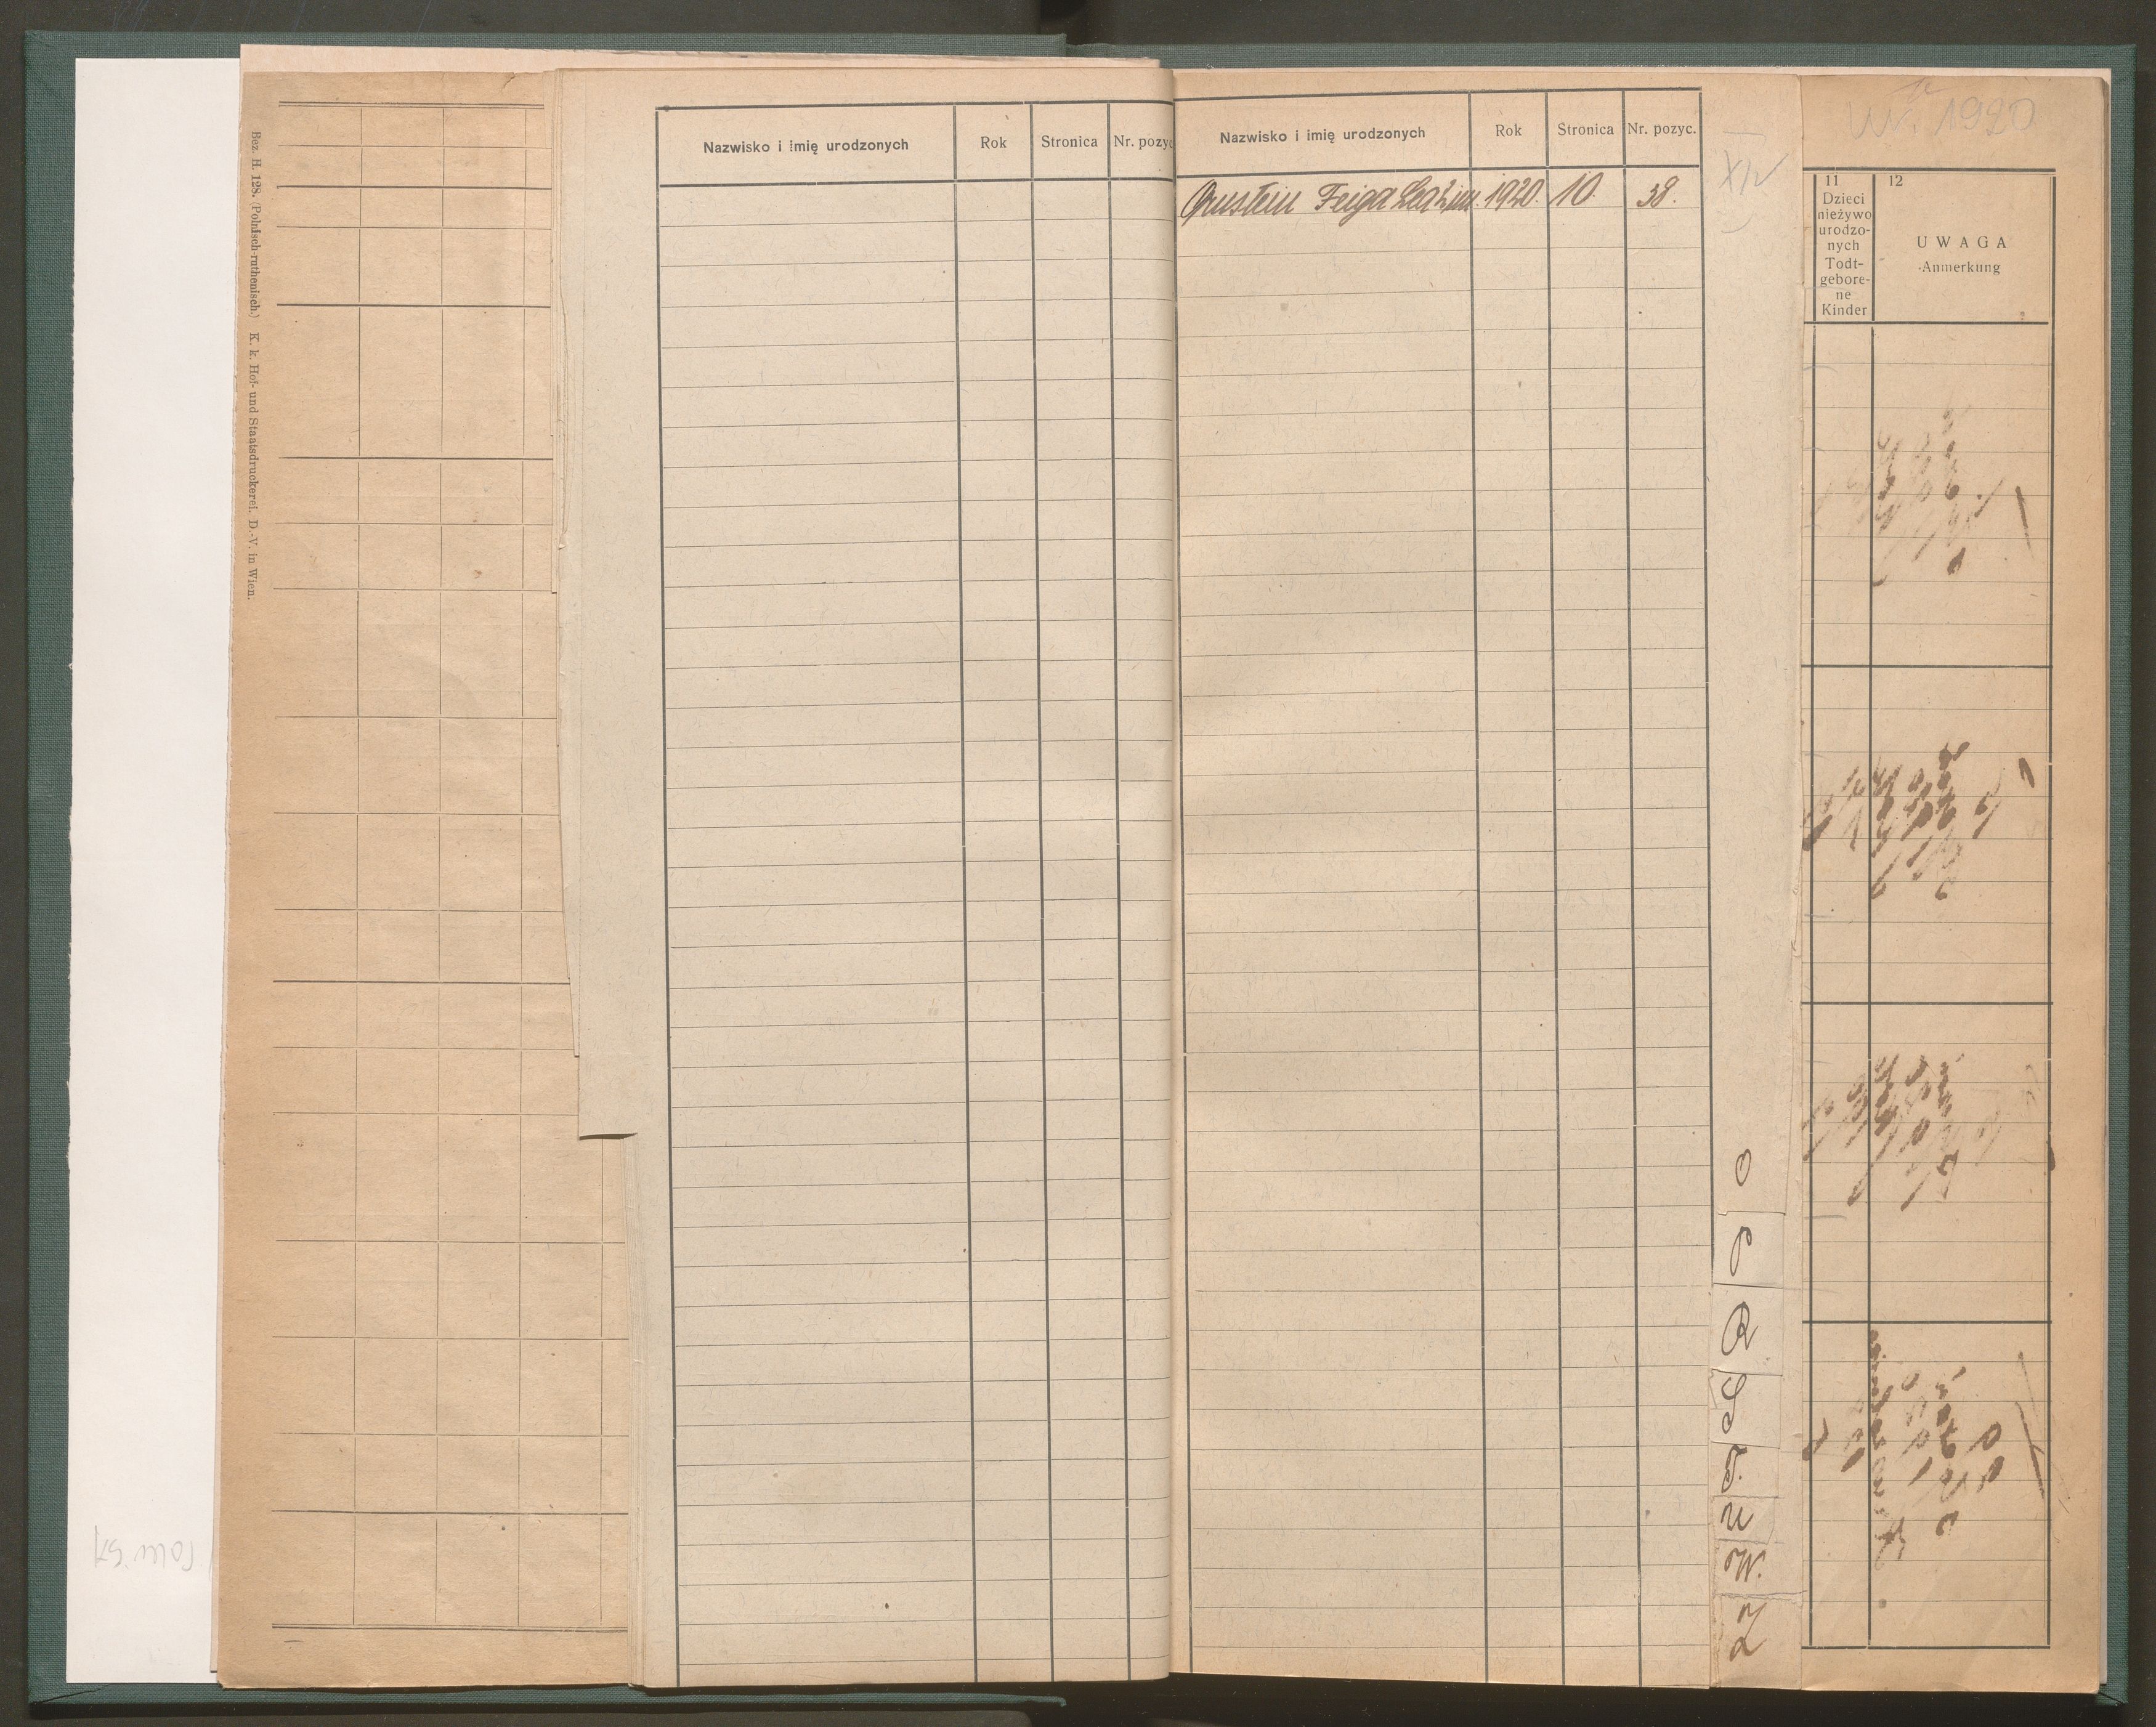 Bez. H. 128. (Polnisch-ruthenisch.) K. k. Hof- und Staatsdruckerei. D.-V. in Wien.
Nazwisko i imię urodzonych Rok Stronica Nr. pozyc
Nazwisko i imię urodzonych Rok Stronica Nr. pozyc.
Feiga 1920. 10. 38.
XIV
O
P
R
S
T.
U
W.
Z
1920
11 12
Dzieci
nieżywo
urodzo-
nych
Todt-
gebore-
ne
Kinder
UWAGA
Anmerkung